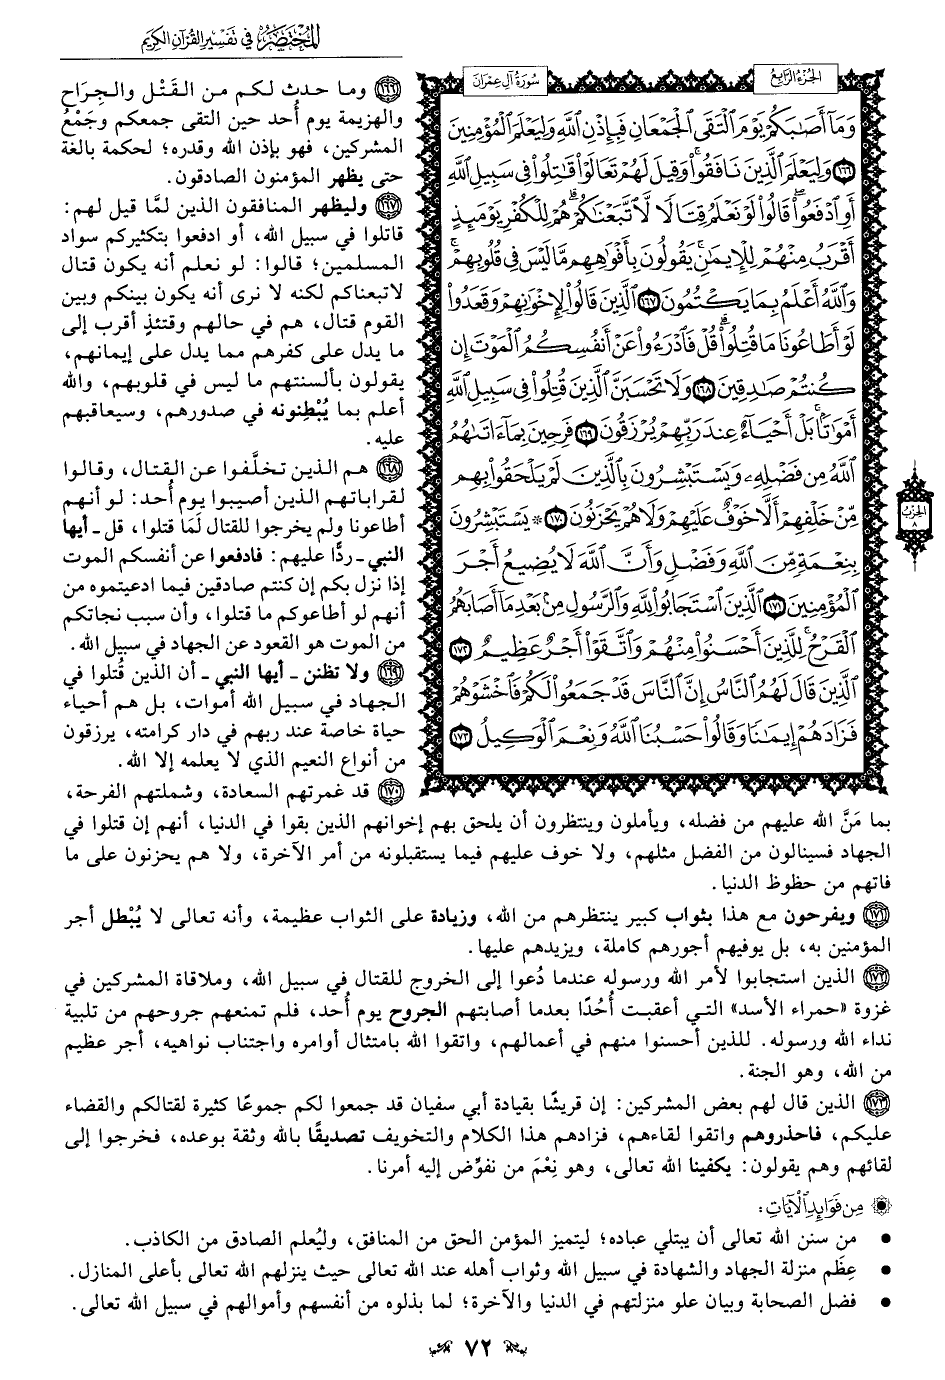 المختصر في تفسير القرآن الكريم
الجزء الرابع
سورة آل عمران
وَمَآ أَصَٰبَكُمْ يَوْمَ ٱلْتَقَى ٱلْجَمْعَانِ فَبِإِذْنِ ٱللَّهِ وَلِيَعْلَمَ ٱلْمُؤْمِنِينَ
١٦٦ وَلِيَعْلَمَ ٱلَّذِينَ نَافَقُوا۟ۚ وَقِيلَ لَهُمْ تَعَالَوْا۟ قَٰتِلُوا۟ فِى سَبِيلِ ٱللَّهِ
أَوِ ٱدْفَعُوا۟ۖ قَالُوا۟ لَوْ نَعْلَمُ قِتَالًا لَّٱتَّبَعْنَٰكُمْۗ هُمْ لِلْكُفْرِ يَوْمَئِذٍ
أَقْرَبُ مِنْهُمْ لِلْإِيمَٰنِۚ يَقُولُونَ بِأَفْوَٰهِهِم مَّا لَيْسَ فِى قُلُوبِهِمْۗ
وَٱللَّهُ أَعْلَمُ بِمَا يَكْتُمُونَ ١٦٧ ٱلَّذِينَ قَالُوا۟ لِإِخْوَٰنِهِمْ وَقَعَدُوا۟
لَوْ أَطَاعُونَا مَا قُتِلُوا۟ۗ قُلْ فَٱدْرَءُوا۟ عَنْ أَنفُسِكُمُ ٱلْمَوْتَ إِن
كُنتُمْ صَٰدِقِينَ ١٦٨ وَلَا تَحْسَبَنَّ ٱلَّذِينَ قُتِلُوا۟ فِى سَبِيلِ ٱللَّهِ
أَمْوَٰتًۢاۚ بَلْ أَحْيَآءٌ عِندَ رَبِّهِمْ يُرْزَقُونَ ١٦٩ فَرِحِينَ بِمَآ ءَاتَىٰهُمُ
ٱللَّهُ مِن فَضْلِهِۦ وَيَسْتَبْشِرُونَ بِٱلَّذِينَ لَمْ يَلْحَقُوا۟ بِهِم
مِّنْ خَلْفِهِمْ أَلَّا خَوْفٌ عَلَيْهِمْ وَلَا هُمْ يَحْزَنُونَ ١٧٠ ۞ يَسْتَبْشِرُونَ
بِنِعْمَةٍ مِّنَ ٱللَّهِ وَفَضْلٍ وَأَنَّ ٱللَّهَ لَا يُضِيعُ أَجْرَ
ٱلْمُؤْمِنِينَ ١٧١ ٱلَّذِينَ ٱسْتَجَابُوا۟ لِلَّهِ وَٱلرَّسُولِ مِنۢ بَعْدِ مَآ أَصَابَهُمُ
ٱلْقَرْحُۚ لِلَّذِينَ أَحْسَنُوا۟ مِنْهُمْ وَٱتَّقَوْا۟ أَجْرٌ عَظِيمٌ ١٧٢
ٱلَّذِينَ قَالَ لَهُمُ ٱلنَّاسُ إِنَّ ٱلنَّاسَ قَدْ جَمَعُوا۟ لَكُمْ فَٱخْشَوْهُمْ
فَزَادَهُمْ إِيمَٰنًا وَقَالُوا۟ حَسْبُنَا ٱللَّهُ وَنِعْمَ ٱلْوَكِيلُ ١٧٣
الحزب
٨
١٦٦ وما حدث لكم من القَتْل والجِراح
والهزيمة يوم أُحد حين التقى جمعكم وجَمْعُ
المشركين، فهو بإذن الله وقدره؛ لحكمة بالغة
حتى يظهر المؤمنون الصادقون.
١٦٧ وليظهر المنافقون الذين لمَّا قيل لهم:
قاتلوا في سبيل الله، أو ادفعوا بتكثيركم سواد
المسلمين؛ قالوا: لو نعلم أنه يكون قتال
لاتبعناكم لكنه لا نرى أنه يكون بينكم وبين
القوم قتال، هم في حالهم وقتئذٍ أقرب إلى
ما يدل على كفرهم مما يدل على إيمانهم،
يقولون بألسنتهم ما ليس في قلوبهم، والله
أعلم بما يُبْطِنونه في صدورهم، وسيعاقبهم
عليه.
١٦٨ هم الذين تخلَّفوا عن القتال، وقالوا
لقراباتهم الذين أصيبوا يوم أُحد: لو أنهم
أطاعونا ولم يخرجوا للقتال لَمَا قتلوا، قل ـ أيها
النبي ـ ردًّا عليهم: فادفعوا عن أنفسكم الموت
إذا نزل بكم إن كنتم صادقين فيما ادعيتموه من
أنهم لو أطاعوكم ما قتلوا، وأن سبب نجاتكم
من الموت هو القعود عن الجهاد في سبيل الله.
١٦٩ ولا تظنن ـ أيها النبي ـ أن الذين قُتلوا في
الجهاد في سبيل الله أموات، بل هم أحياء
حياة خاصة عند ربهم في دار كرامته، يرزقون
من أنواع النعيم الذي لا يعلمه إلا الله.
١٧٠ قد غمرتهم السعادة، وشملتهم الفرحة،
بما مَنَّ الله عليهم من فضله، ويأملون وينتظرون أن يلحق بهم إخوانهم الذين بقوا في الدنيا، أنهم إن قتلوا في
الجهاد فسينالون من الفضل مثلهم، ولا خوف عليهم فيما يستقبلونه من أمر الآخرة، ولا هم يحزنون على ما
فاتهم من حظوظ الدنيا.
١٧١ ويفرحون مع هذا بثواب كبير ينتظرهم من الله، وزيادة على الثواب عظيمة، وأنه تعالى لا يُبْطل أجر
المؤمنين به، بل يوفيهم أجورهم كاملة، ويزيدهم عليها.
١٧٢ الذين استجابوا لأمر الله ورسوله عندما دُعوا إلى الخروج للقتال في سبيل الله، وملاقاة المشركين في
غزوة «حمراء الأسد» التي أعقبت أُحُدًا بعدما أصابتهم الجروح يوم أُحد، فلم تمنعهم جروحهم من تلبية
نداء الله ورسوله. للذين أحسنوا منهم في أعمالهم، واتقوا الله بامتثال أوامره واجتناب نواهيه، أجر عظيم
من الله، وهو الجنة.
١٧٣ الذين قال لهم بعض المشركين: إن قريشًا بقيادة أبي سفيان قد جمعوا لكم جموعًا كثيرة لقتالكم والقضاء
عليكم، فاحذروهم واتقوا لقاءهم، فزادهم هذا الكلام والتخويف تصديقًا بالله وثقة بوعده، فخرجوا إلى
لقائهم وهم يقولون: يكفينا الله تعالى، وهو نِعْمَ من نفوِّض إليه أمرنا.
من فوائد الآيات:
• من سنن الله تعالى أن يبتلي عباده؛ ليتميز المؤمن الحق من المنافق، وليُعلم الصادق من الكاذب.
• عِظَم منزلة الجهاد والشهادة في سبيل الله وثواب أهله عند الله تعالى حيث ينزلهم الله تعالى بأعلى المنازل.
• فضل الصحابة وبيان علو منزلتهم في الدنيا والآخرة؛ لما بذلوه من أنفسهم وأموالهم في سبيل الله تعالى.
٧٢